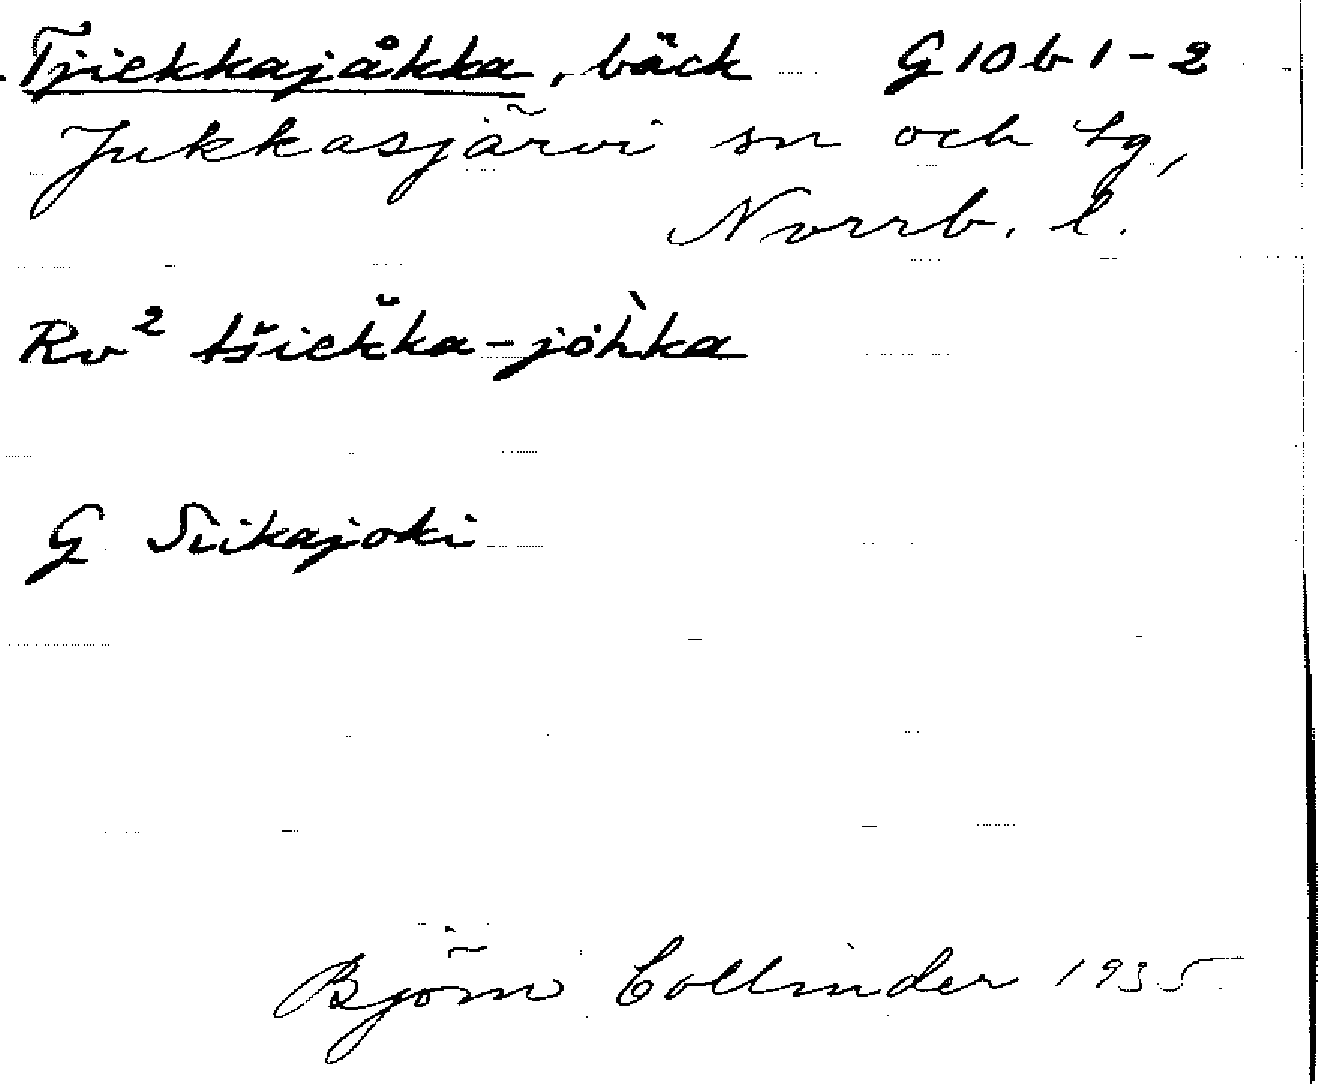 Tjiekkajåkka, bäck G 10 b 1-2
Jukkasjärvi sn och tg,
Norrb. l.
Rv² tšiek̆ka-jòh̀ka
G Siikajoki
Björn Collinder 1935